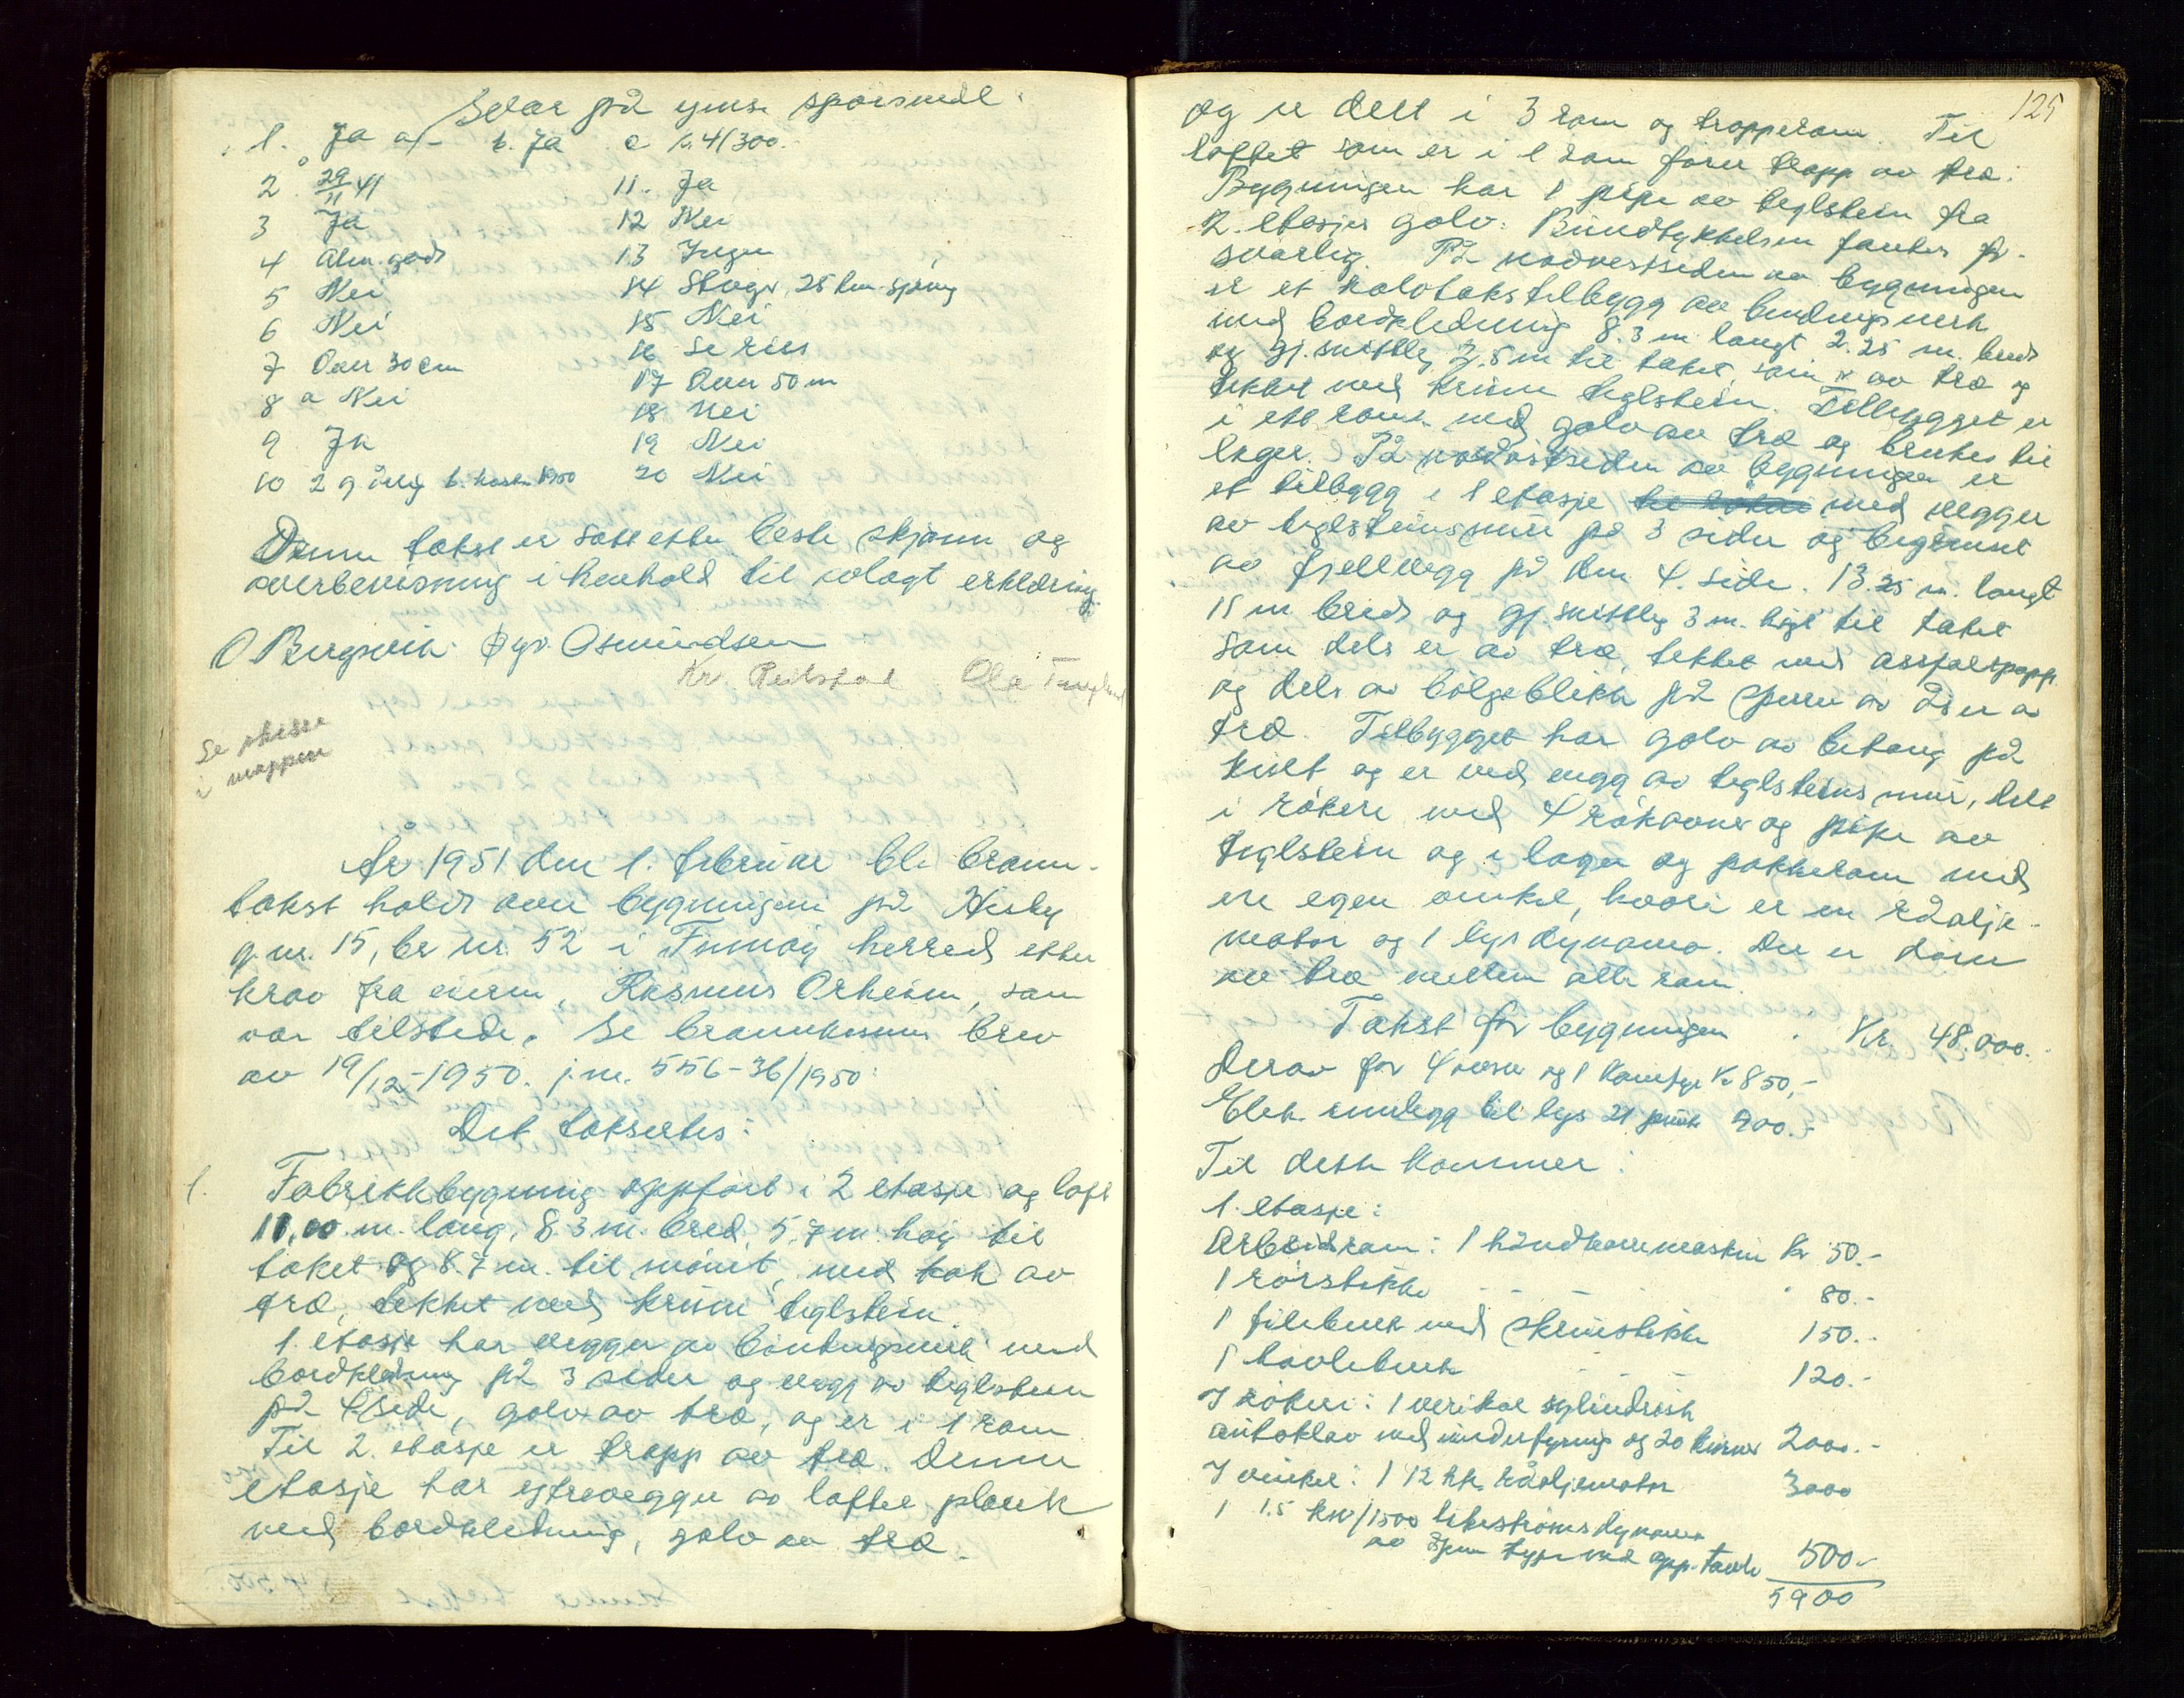 Svar på ymse spørsmål.
1. Ja a/- b. Ja c kr. 4/300.-
2 29/11 41
3 Ja
4 Alm. god
5 Nei
6 Nei
7 Over 30 cm
8 a Nei
9 Ja
10 2 g årlig b. høsten 1950
11. Ja
12 Nei
13 Ingen
14 Slange, 25 km.
15 Nei
16 Series
17 Over 50 m
18 Nei
19 Nei
20 Nei
Denne takst er satt etter beste skjønn og
overbevisning i henhold til avlagt erklæring.
O Bergsvik. Ødv. Osmundsen
Kr. Reilstad Ola
Se skisse
i mappen
År 1951 den 1. februar ble brann-
takst holdt over bygningene på Hesby
g.nr. 15, br nr. 52 i Finnøy herred etter
krav fra eieren, Rasmus Orheim, som
var tilstede. Se brannkassens brev
av 19/12-1950. j.nr. 556-36/1950
Det taksertes:
1. Fabrikkbygning oppført i 2 etasje og loft
11,00 m. lang, 8.3 m. bred, 5.7 m. høg til
taket og 8.7 m. til mønet, med tak av
tre, tekket med krum teglstein.
1. etasje har vegger av bindingsverk med
bordkledning på 3 sider og vegg av teglstein
på 4 side, golv av tre, og er i 1 rom
Til 2. etasje er trapp av tre. Denne
etasje har yttervegger av laftet plank
med bordkledning, golv av tre
125
og er delt i 3 rom og trapperom. Til
loftet som er i 1 rom fører trapp av tre.
Bygningen har 1 pipe av teglstein fra
2. etasjes golv. Bunntykkelsen fantes for-
svarlig. På nordvestsiden av bygningen
er et halvtakstilbygg av bindingsverk
med bordkledning 8.3 m langt 2.25 m. bredt
og gj.snittlig 2.5 m til taket, som er av tre og
tekket med krum teglstein. Tilbygget er
i ett rom med golv av tre og brukes til
lager. På nordøstsiden av bygningen er
et tilbygg i 1 etasje med vegger
av teglsteinsmur på 3 sider og begrenset
av fjellvegg på den 4. side. 13.25 m. langt
11 m bredt og gj.snittlig 3 m. høgt til taket
som dels er av tre, tekket med assfaltpapp
og dels av bølgeblikk på sperrer av åser av
tre. Tilbygget har golv av betong på
kult og er med vegg av teglsteinsmur, delt
i røkeri med 4 røkovner og pipe av
teglstein og i lager og pakkerom med
en egen vinkel, hvori er en råolje-
motor og 1 lysdynamo. Det er dører
av tre mellem alle rom.
Takst for bygningen . Kr. 48.000.-
Derav for 4 ovner og 1 komfyr Kr 850,-
Elek. innlegg til lys 21 punkt 700.-
Til dette kommer:
1. etasje:
Arbeidsrom: 1 håndboremaskin Kr 50.-
1 rørstikke - - - 80.-
1 filebenk med skruestikke 150.-
1 høvlebenk - - - 120.-
I røkeri: 1 vertikal sylindrisk
autoklav med underfyring og 20 kurver 2000.-
I vinkel: 1 12 hk. råoljemotor 3000
1 1.5 kw/1500 likestrøms dynamo
av åpen type med app. tavle 500.-
5900